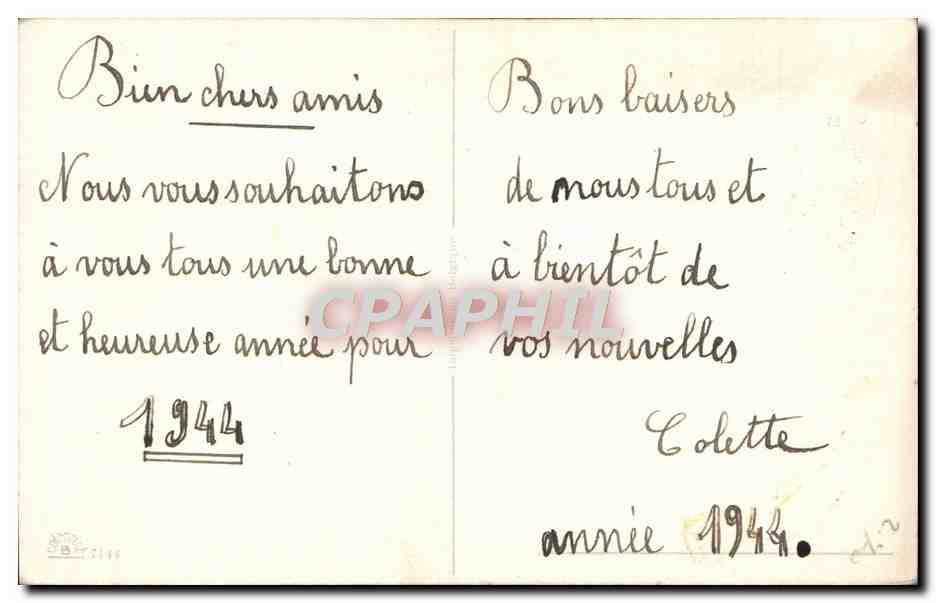 Bien chers amis
Nous vous souhaitons
à vous tous une bonne
et heureuse année pour
1944
Bons baisers
de nous tous et
à bientôt de
vos nouvelles
Colette
année 1944.
CPAPHIL